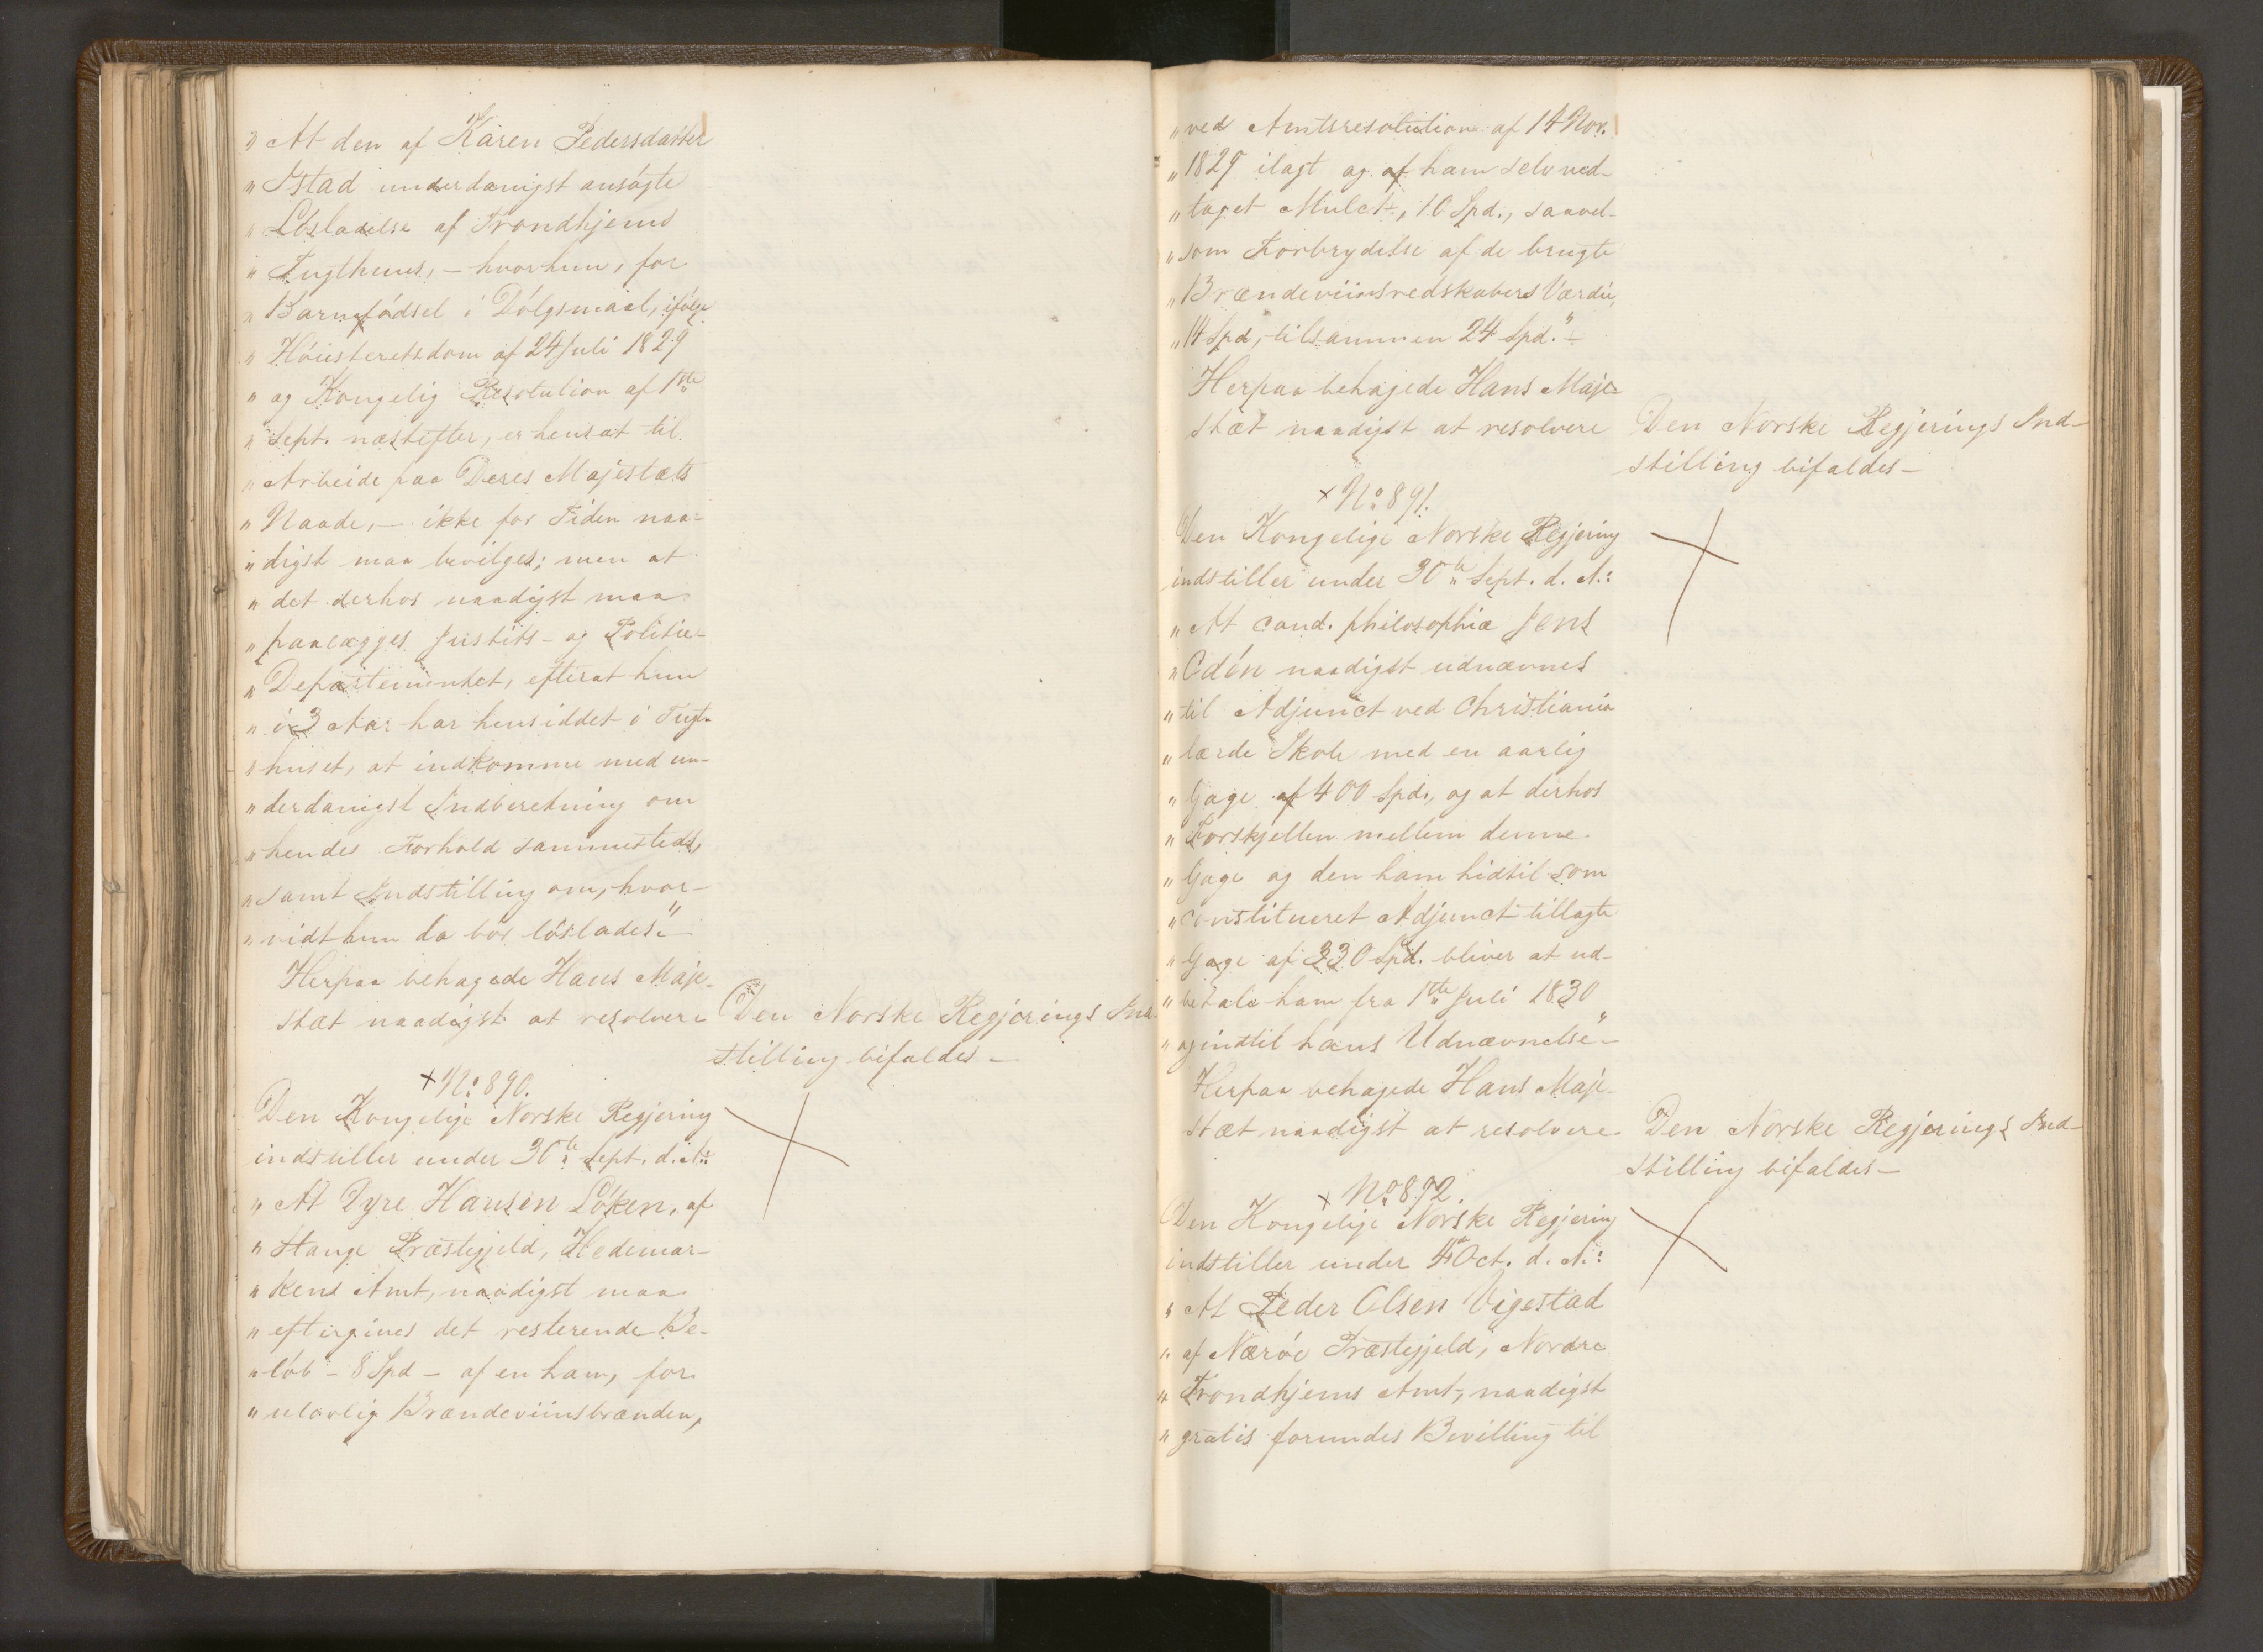 „At den af Karen Pedersdatter
„Istad underdanigst ansøgte
„Løsladelse af Trondhjems
„Tugthuus, – hvor hun, for
„Barnefødsel i Dølgsmaal, ifølge
„Høiesteretsdom af 24 Juli 1829
„og Kongelig Resolution af 1ste
„Sept. næstefter, er hensat til
„Arbeide paa Deres Majestæts
„Naade, – ikke for Tiden naa-
„digst maa bevilges; men at
„det derhos naadigst maa
„paalægges Justits- og Politie-
„Departementet, efterat hun
„i 3 Aar har hensiddet i Tugt-
„huset, at indkomme med un-
„derdanigst Indberetning om
„hendes Forhold sammesteds,
„samt Indstilling om, hvor-
„vidt hun da bør løslades.“
Herpaa behagede Hans Maje-
stæt naadigst at resolvere Den Norske Regjerings Ind-
stilling bifaldes –
+ No 890.
Den Kongelige Norske Regjering
indstiller under 30te Sept. d. A.:
„At Dyre Hansen Løken, af
„Stange Præstegjeld, Hedemar-
„kens Amt, naadigst maa
„eftergives det resterende Be-
„løb – 8 Spd – af en ham, for
„ulovlig Brændeviinsbrænden,
„ved Amtsresolution af 14 Nov.
„1829 ilagt og af ham selv ved-
„taget Mulct, 10 Spd., saavel-
„som Forbrydelse af de brugte
„Brændeviinsredskabers Værdie,
„14 Spd, tilsammen 24 Spd.“ –
Herpaa behagede Hans Maje-
stæt naadigst at resolvere Den Norske Regjerings Ind-
stilling bifaldes –
+ No 891.
Den Kongelige Norske Regjering
indstiller under 30te Sept. d. A.:
„At cand. philosophiæ Jens
„Odén naadigst udnævnes
„til Adjunct ved Christiania
„lærde Skole med en aarlig
„Gage af 400 Spd., og at derhos
„Forskjellen mellem denne
„Gage og den ham hidtil som
„constitueret Adjunct tillagte
„Gage af 330 Spd. bliver at ud-
„betale ham fra 1ste Juli 1830
„og indtil hans Udnævnelse“ –
Herpaa behagede Hans Maje-
stæt naadigst at resolvere Den Norske Regjerings Ind-
stilling bifaldes –
+ No 892.
Den Kongelige Norske Regjering
indstiller under 4 Oct. d. A.:
„At Peder Olsen Vigestad
„af Nærøe Præstegjeld, Nordre
„Trondhjems Amt, naadigst
„gratis forundes Bevilling til